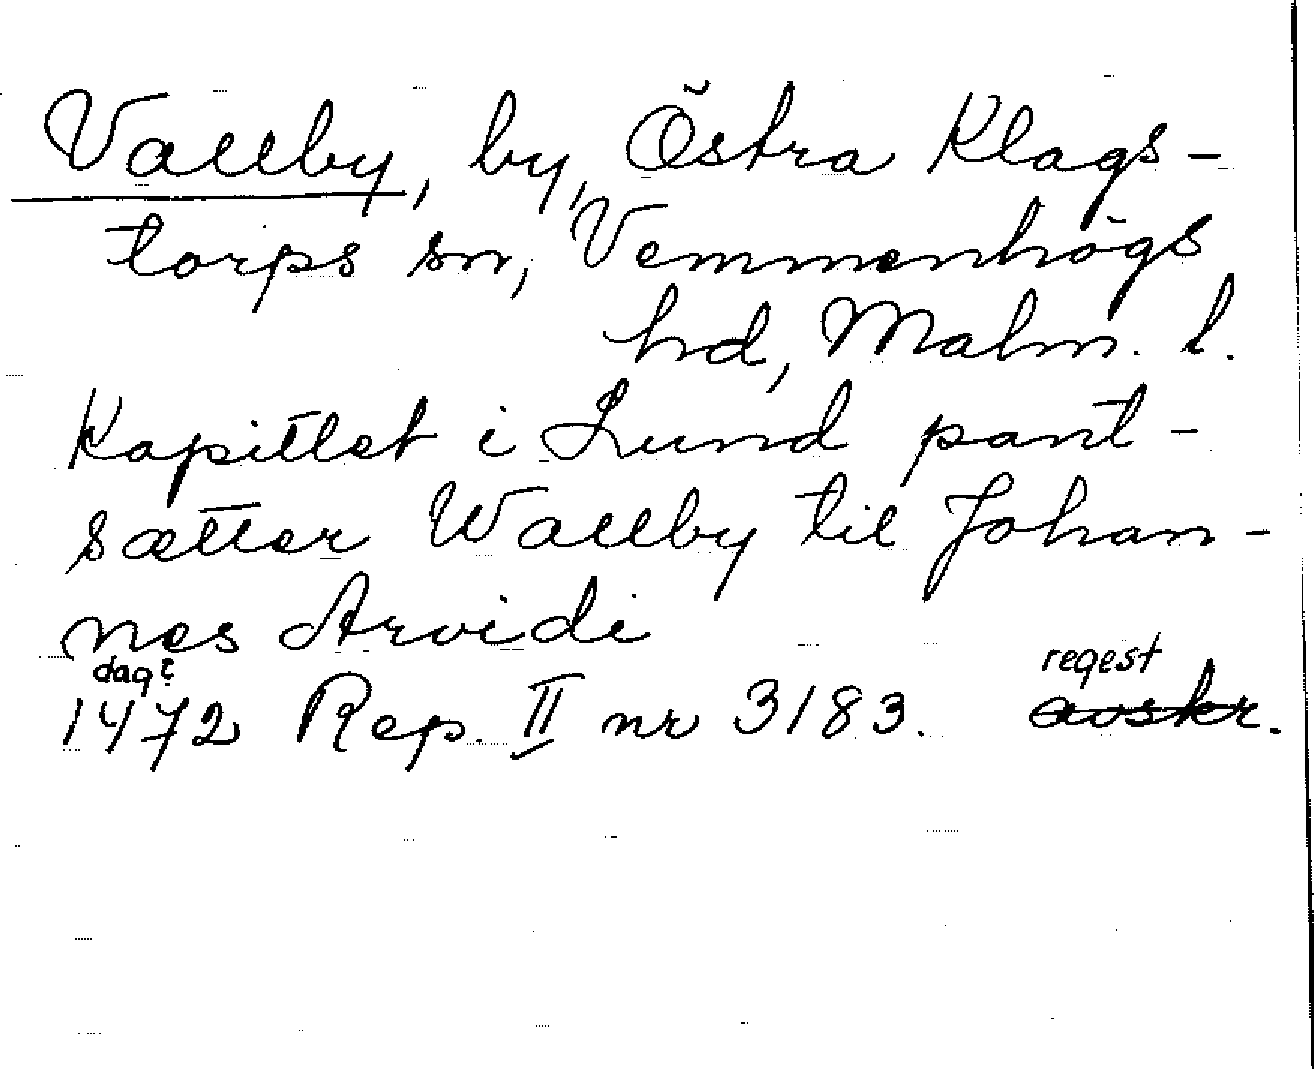 Vallby, by, Östra Klags-
torps sn, Vemmenhögs
hd, Malm. l.
Kapitlet i Lund pant-
sætter Wallby til Johan-
nes Arvidi
dag?
1472 Rep. II nr 3183. regest
avskr.